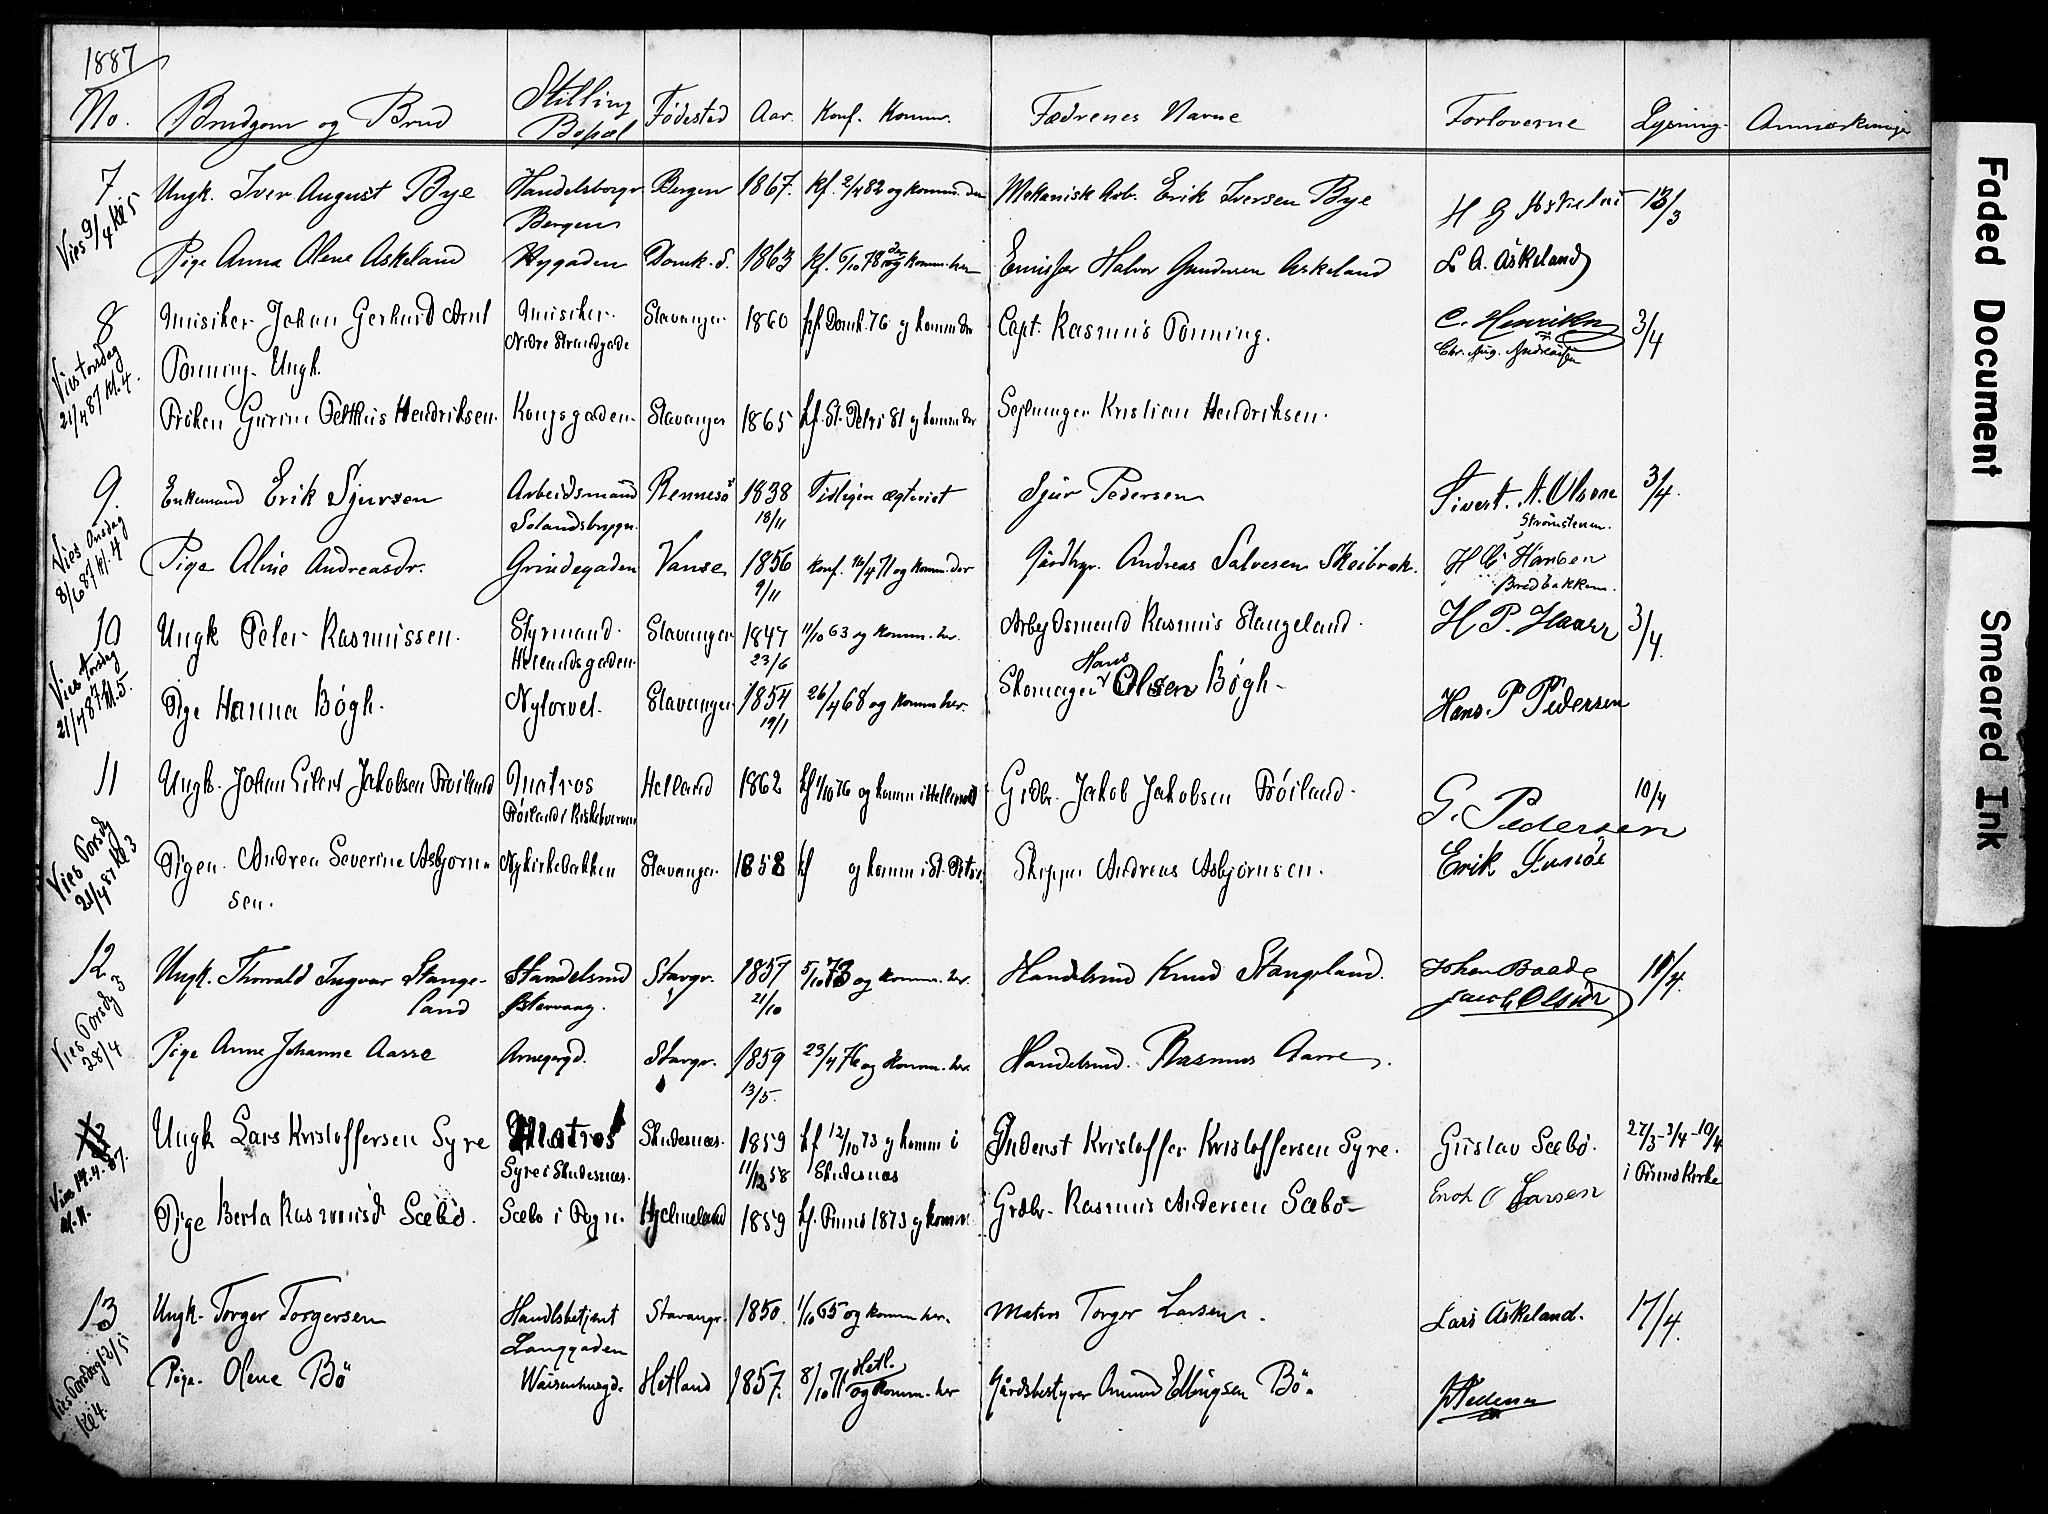 1887
No. Brudgom og Brud Stilling Bopæl Fødested Aar. Konf. Komm. Fædrenes Navne Forloverne Lysning Anmærkninger
7 Ungk. Iver August Bye Handelsborgr Bergen 1867. kf. 2/4 82 og komm. der Mekanisk Arb. Erik Iversen Bye H G 13/3
Vies 9/4 kl 5 Bergen
Pige Anna Olene Askeland Nygaden Domk. S. 1863 kf. 6/10 78 og komm. her Emissær Halvor Gundersen Askeland L. A. Askeland
8 Musiker Johan Gerhard Arnt Musiker. Stavanger 1860 kf. Domk. 76 og komm der Capt. Rasmus Tonning. C. Henriksn 3/4
Vies torsdag Nedre Strandgade Chr. Aug. Andreassen
21/4 87 kl. 4. Tonning. Ungk.
Frøken Gurine Felthus Hendriksen. Kongsgaden. Stavanger 1865 kf. St. Petri 81 og komm der Kristian Hendriksen.
9. Enkemand Erik Sjursen Arbeidsmand Rennesø 1838 Tidligere ægteviet Sjur Pedersen Sivert. A. Olsen 3/4.
Vies Onsdag 18/11 Strømstenen.
8/6 87 kl. 4 Pige Aline Andreasdr. Grindegaden Vanse 1856 Konf. 16/4 71 og komm. der Gårdbr. Andreas Salvesen Skeibrok. H C Hansen
9/11 Bredbakken.
10 Ungk Peter Rasmussen. Styrmand. Stavanger 1847 11/10 63 og komm. her. Arbejdsmand Rasmus Slangeland. H. P. Haarr 3/4.
Vies torsdag 23/6
21/4 87 kl. 5. Hans
Pige Hanna Bögh. Nytorvet. Stavanger 1854 26/4 68 og komm her. Skomager Olsen Bögh. Hans. P Pedersen
19/1
11 Ungk. Johan Eilert Jakobsen Frøiland Matros Hetland 1862 kf 1/10 76 og komm i Hetland Grdbr. Jakob Jakobsen Frøiland. G. Pedersen 10/4
Vies Torsdg
21/4 87 kl 3 Pigen. Andrea Severine Asbjørn- Nykirkebakken Stavanger 1858 kf og komm i St. Petri. Skipper Andreas Asbjörnsen. Erik
sen.
12 Ungk. Thorvald Ingvar Stange- Handelsmd Stavgr. 1857 5/10 73 og komm. her. Handelsmd Knud Stangeland. Johan Baade 10/4.
Vies Torsdg 3 land Østervaag. 21/10 Jacob Olsen
28/4 Pige Anne Johanne Aarre Arnegrgd. Stavgr. 1859 23/4 76 og komm. her. Handelsmd. Rasmus Aarre.
13/5.
Ungk Lars Kristoffersen Syre Matros Skudesnæs. 1859 kf 12/10 73 og komm i Inderst Kristoffer Kristoffersen Syre. Gustav Sæbø. 27/3-3/4-10/4
Vies 14.4.87. Syre i Skudesnæs. 11/12 58 Skudesnæs i Finnø Kirke
kl. 11. Pige Berta Rasmusd. Sæbø. Sæbø i Fogn. Hjelmeland 1859 kf. Finnø 1873 og komm Grdbr. Rasmus Andersen Sæbø- Enok O Larsen
13 Ungk. Torger Torgersen Handlsbetjent Stavangr. 1850. 1/10 65 og komm her. Matros Torger Larsen. Lars Askeland. 17/4.
Vies Torsdag 12/5 Langgaden
kl 4. Pige. Olene Bö Waisenhusgd. Hetland 1857. 8/10 71 Hetl. og komm. her Gårdsbestyrer Amund Ellingsen Bö. Pedersen
Faded Document
Smeared Ink